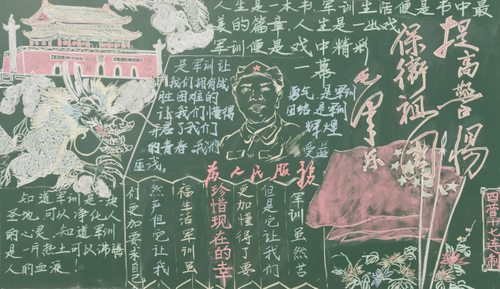 人生是一本书,军训生活便是书中最
美的篇章人生是一出戏
军训便是人戏中精彩
一幕
提高警惕
保衛祖國
毛澤东
是军训让
我们拥有战
胜困难的
勇气 是军训
让我们懂得
团结 是军训
了我们
辉煌
的青春,我们
受益
匪浅。
为人民服務
知道军训是一
圣地,可以净化人
的心灵,知道军训
是一片热土可以沸腾
人的血液
军训虽然苦
但是它让我们
更加懂得了要
珍惜现在的幸
福生活军训虽
然严但它让我
们更加要求自
四营十七连制